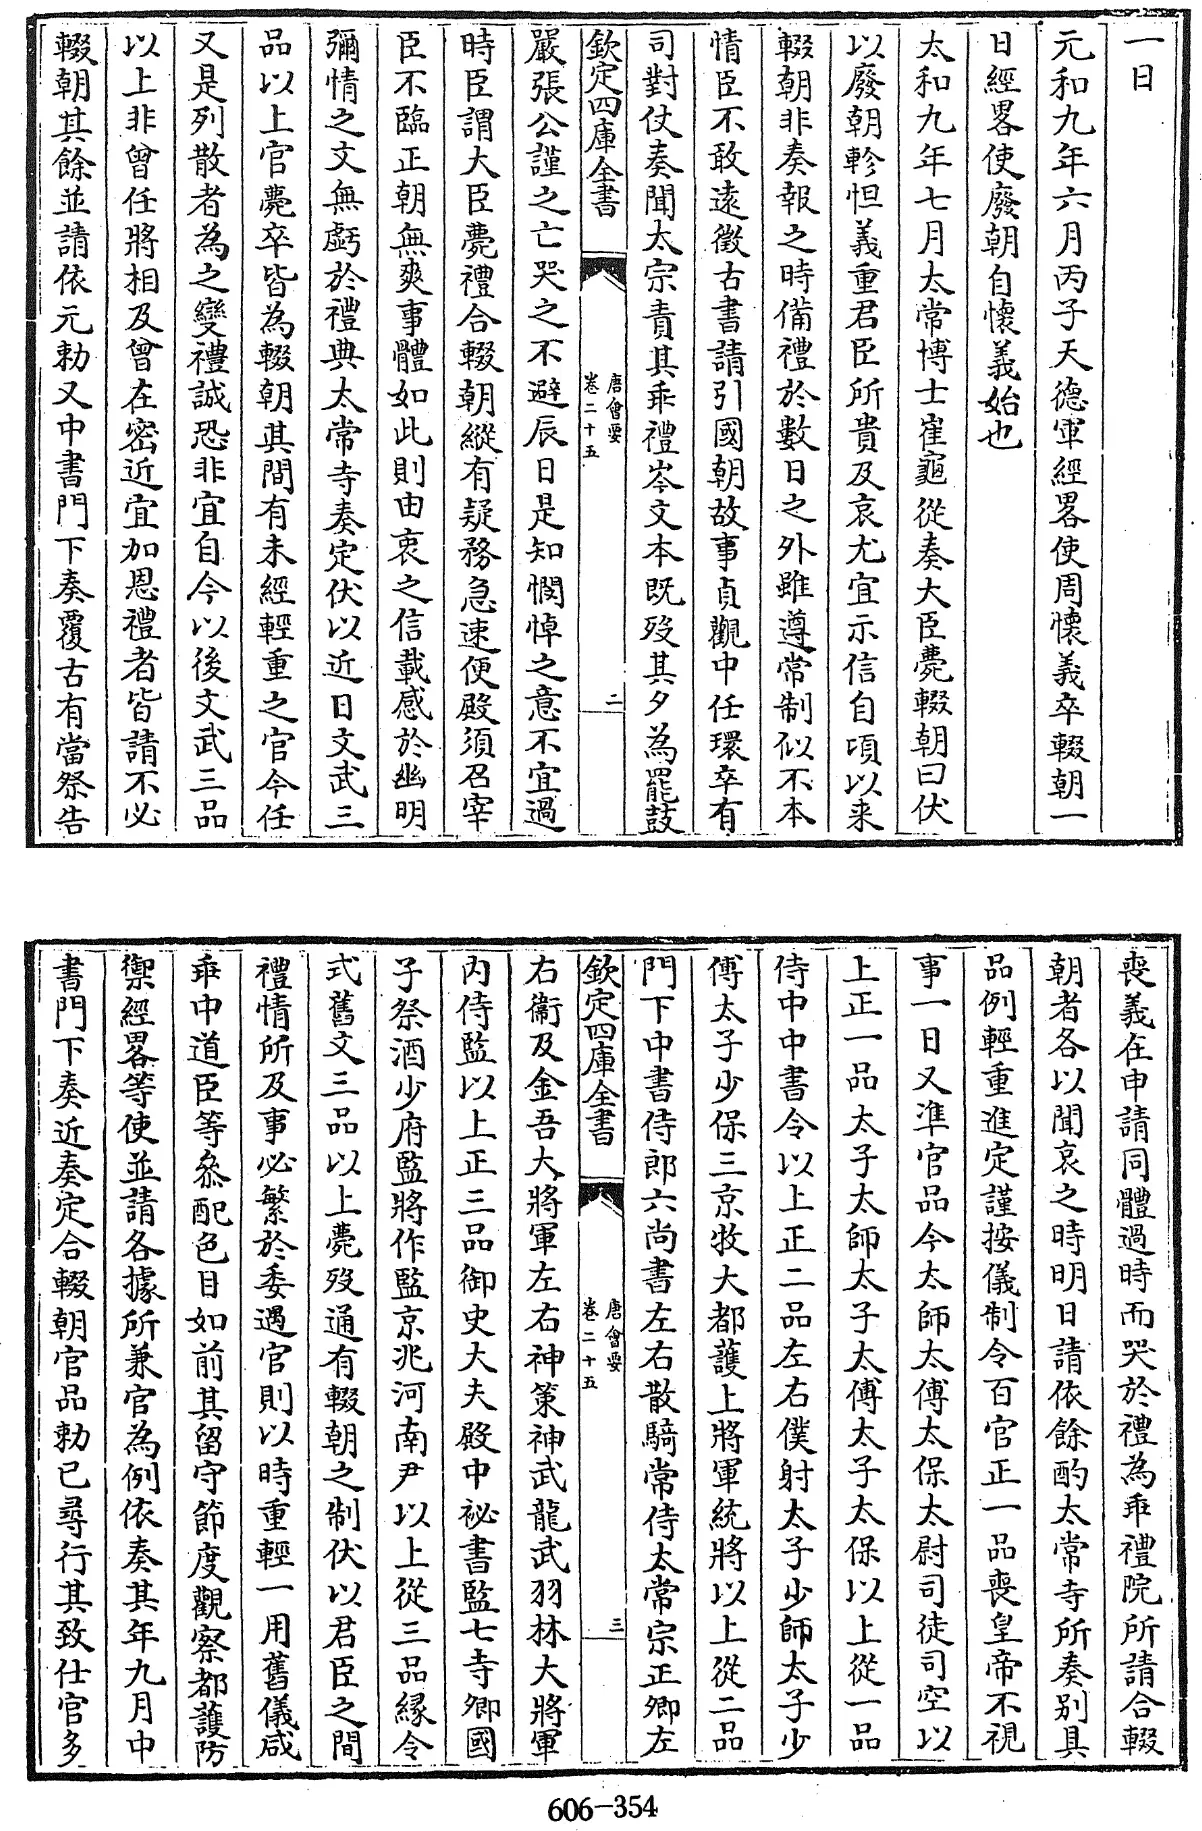 一日
元和九年六月丙子天德軍經畧使周懷義卒輟朝一
日經畧使廢朝自懷義始也
太和九年七月太常博士崔龜從奏大臣薨輟朝曰伏
以廢朝軫怛義重君臣所貴及哀尤宜示信自頃以来
輟朝非奏報之時備禮於數日之外雖遵常制似不本
情臣不敢遠徵古書請引國朝故事貞觀中任瓌卒有
司對仗奏聞太宗責其乖禮岑文本既歿其夕為罷鼓
欽定四庫全書
唐會要
卷二十五
二
嚴張公謹之亡哭之不避辰日是知憫悼之意不宜過
時臣謂大臣薨禮合輟朝縱有疑務急速便殿須召宰
臣不臨正朝無爽事體如此則由衷之信載感於幽明
彌情之文無虧於禮典太常寺奏定伏以近日文武三
品以上官薨卒皆為輟朝其間有未經輕重之官今任
又是列散者為之變禮誠恐非宜自今以後文武三品
以上非曾任將相及曾在密近宜加恩禮者皆請不必
輟朝其餘並請依元勅又中書門下奏覆古有當祭告
喪義在申請同體過時而哭於禮為乖禮院所請合輟
朝者各以聞哀之時明日請依餘酌太常寺所奏别具
品例輕重進定謹按儀制令百官正一品喪皇帝不視
事一日又準官品今太師太傅太保太尉司徒司空以
上正一品太子太師太子太傅太子太保以上從一品
侍中中書令以上正二品左右僕射太子少師太子少
傅太子少保三京牧大都護上將軍統將以上從二品
門下中書侍郎六尚書左右散騎常侍太常宗正卿左
欽定四庫全書
唐會要
卷二十五
三
右衞及金吾大將軍左右神策神武龍武羽林大將軍
内侍監以上正三品御史大夫殿中祕書監七寺卿國
子祭酒少府監將作監京兆河南尹以上從三品縁令
式舊文三品以上薨歿通有輟朝之制伏以君臣之間
禮情所及事必繁於委遇官則以時重輕一用舊儀咸
乖中道臣等叅配色目如前其留守節度觀察都護防
禦經畧等使並請各據所兼官為例依奏其年九月中
書門下奏近奏定合輟朝官品勅已尋行其致仕官多
606-354